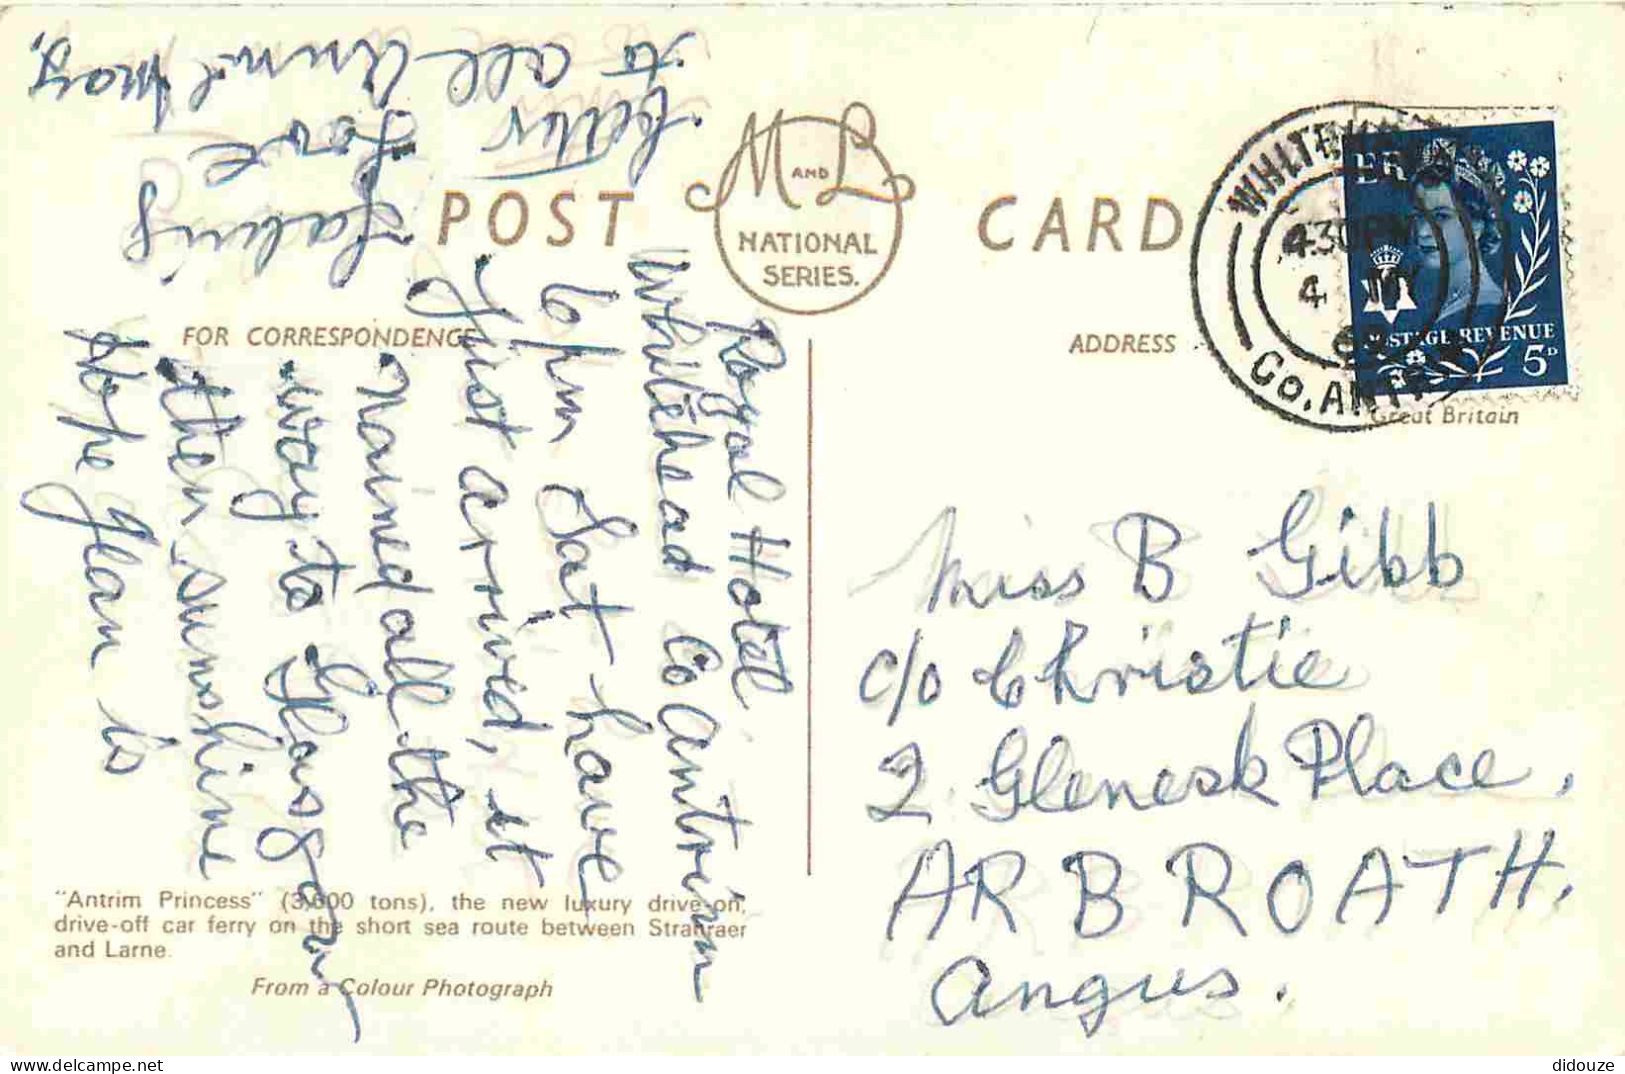 POST CARD
M AND L
NATIONAL
SERIES.
FOR CORRESPONDENCE
ADDRESS
Royal Hotel
Whitehead Co Antrim
6pm Sat have
Just arrived, it
rained all the
way to Glasgow
then sunshine
Hope Jean is
feeling
better Love
to all Aunt May.
"Antrim Princess" (3,600 tons), the new luxury drive-on,
drive-off car ferry on the short sea route between Stranraer
and Larne.
From a Colour Photograph
WHITEHEAD
4 30 PM
4 MY
CO. ANTRIM
POSTAGE REVENUE
5D
Great Britain
Miss B Gibb
c/o Christie
2 Glenesk Place,
ARBROATH,
Angus.
didouze